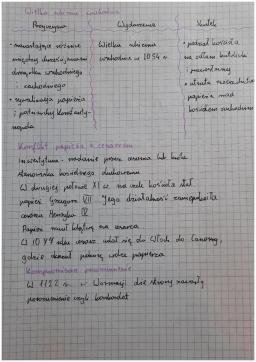 Wielka schizma wschodnia
Przyczyna Wydarzenie Skutek
• narastające różnice
między chrześcijanami
obrządku wschodniego
i zachodniego
• rywalizacja papieża
i patriarchy Konstanty-
nopola
Wielka schizma
wschodnia w 1054 r.
• podział kościoła
na katolicki
i prawosławny
• utrata
papieża nad
kościołem wschodnim
Konflikt papieża z cesarzem
Inwestytura - nadanie przez cesarza lub króla
stanowiska kościelnego duchownemu
W drugiej połowie XI w. na czele kościoła stał
papież Grzegorz VII Jego działalność zaniepokoiła
cesarza Henryka IV
Papież rzucił klątwę na cesarza
W 1077 roku cesarz udał się do Włoch do Canossy,
gdzie okazał pokorę wobec papieża
Kompromisowe porozumienie
W 1122 r. w Wormacji dwie strony zawarły
porozumienie czyli konkordat